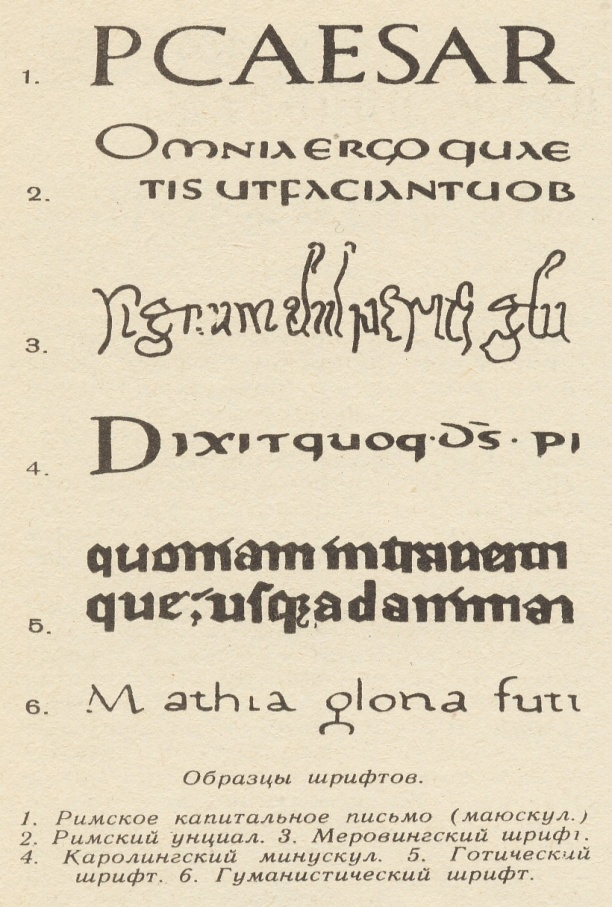 1. PCAESAR
OMNIA ERGO QUAE
2. TIS UTFACIANTUOB
3.
4. DIXITquoq·DS̄· PI
5. quoniam intrauerunt
que; usq; ad animam
6. Mathia gloria futi
Образцы шрифтов.
1. Римское капитальное письмо (маюскул.)
2. Римский унциал. 3. Меровингский шрифт.
4. Каролингский минускул. 5. Готический
шрифт. 6. Гуманистический шрифт.